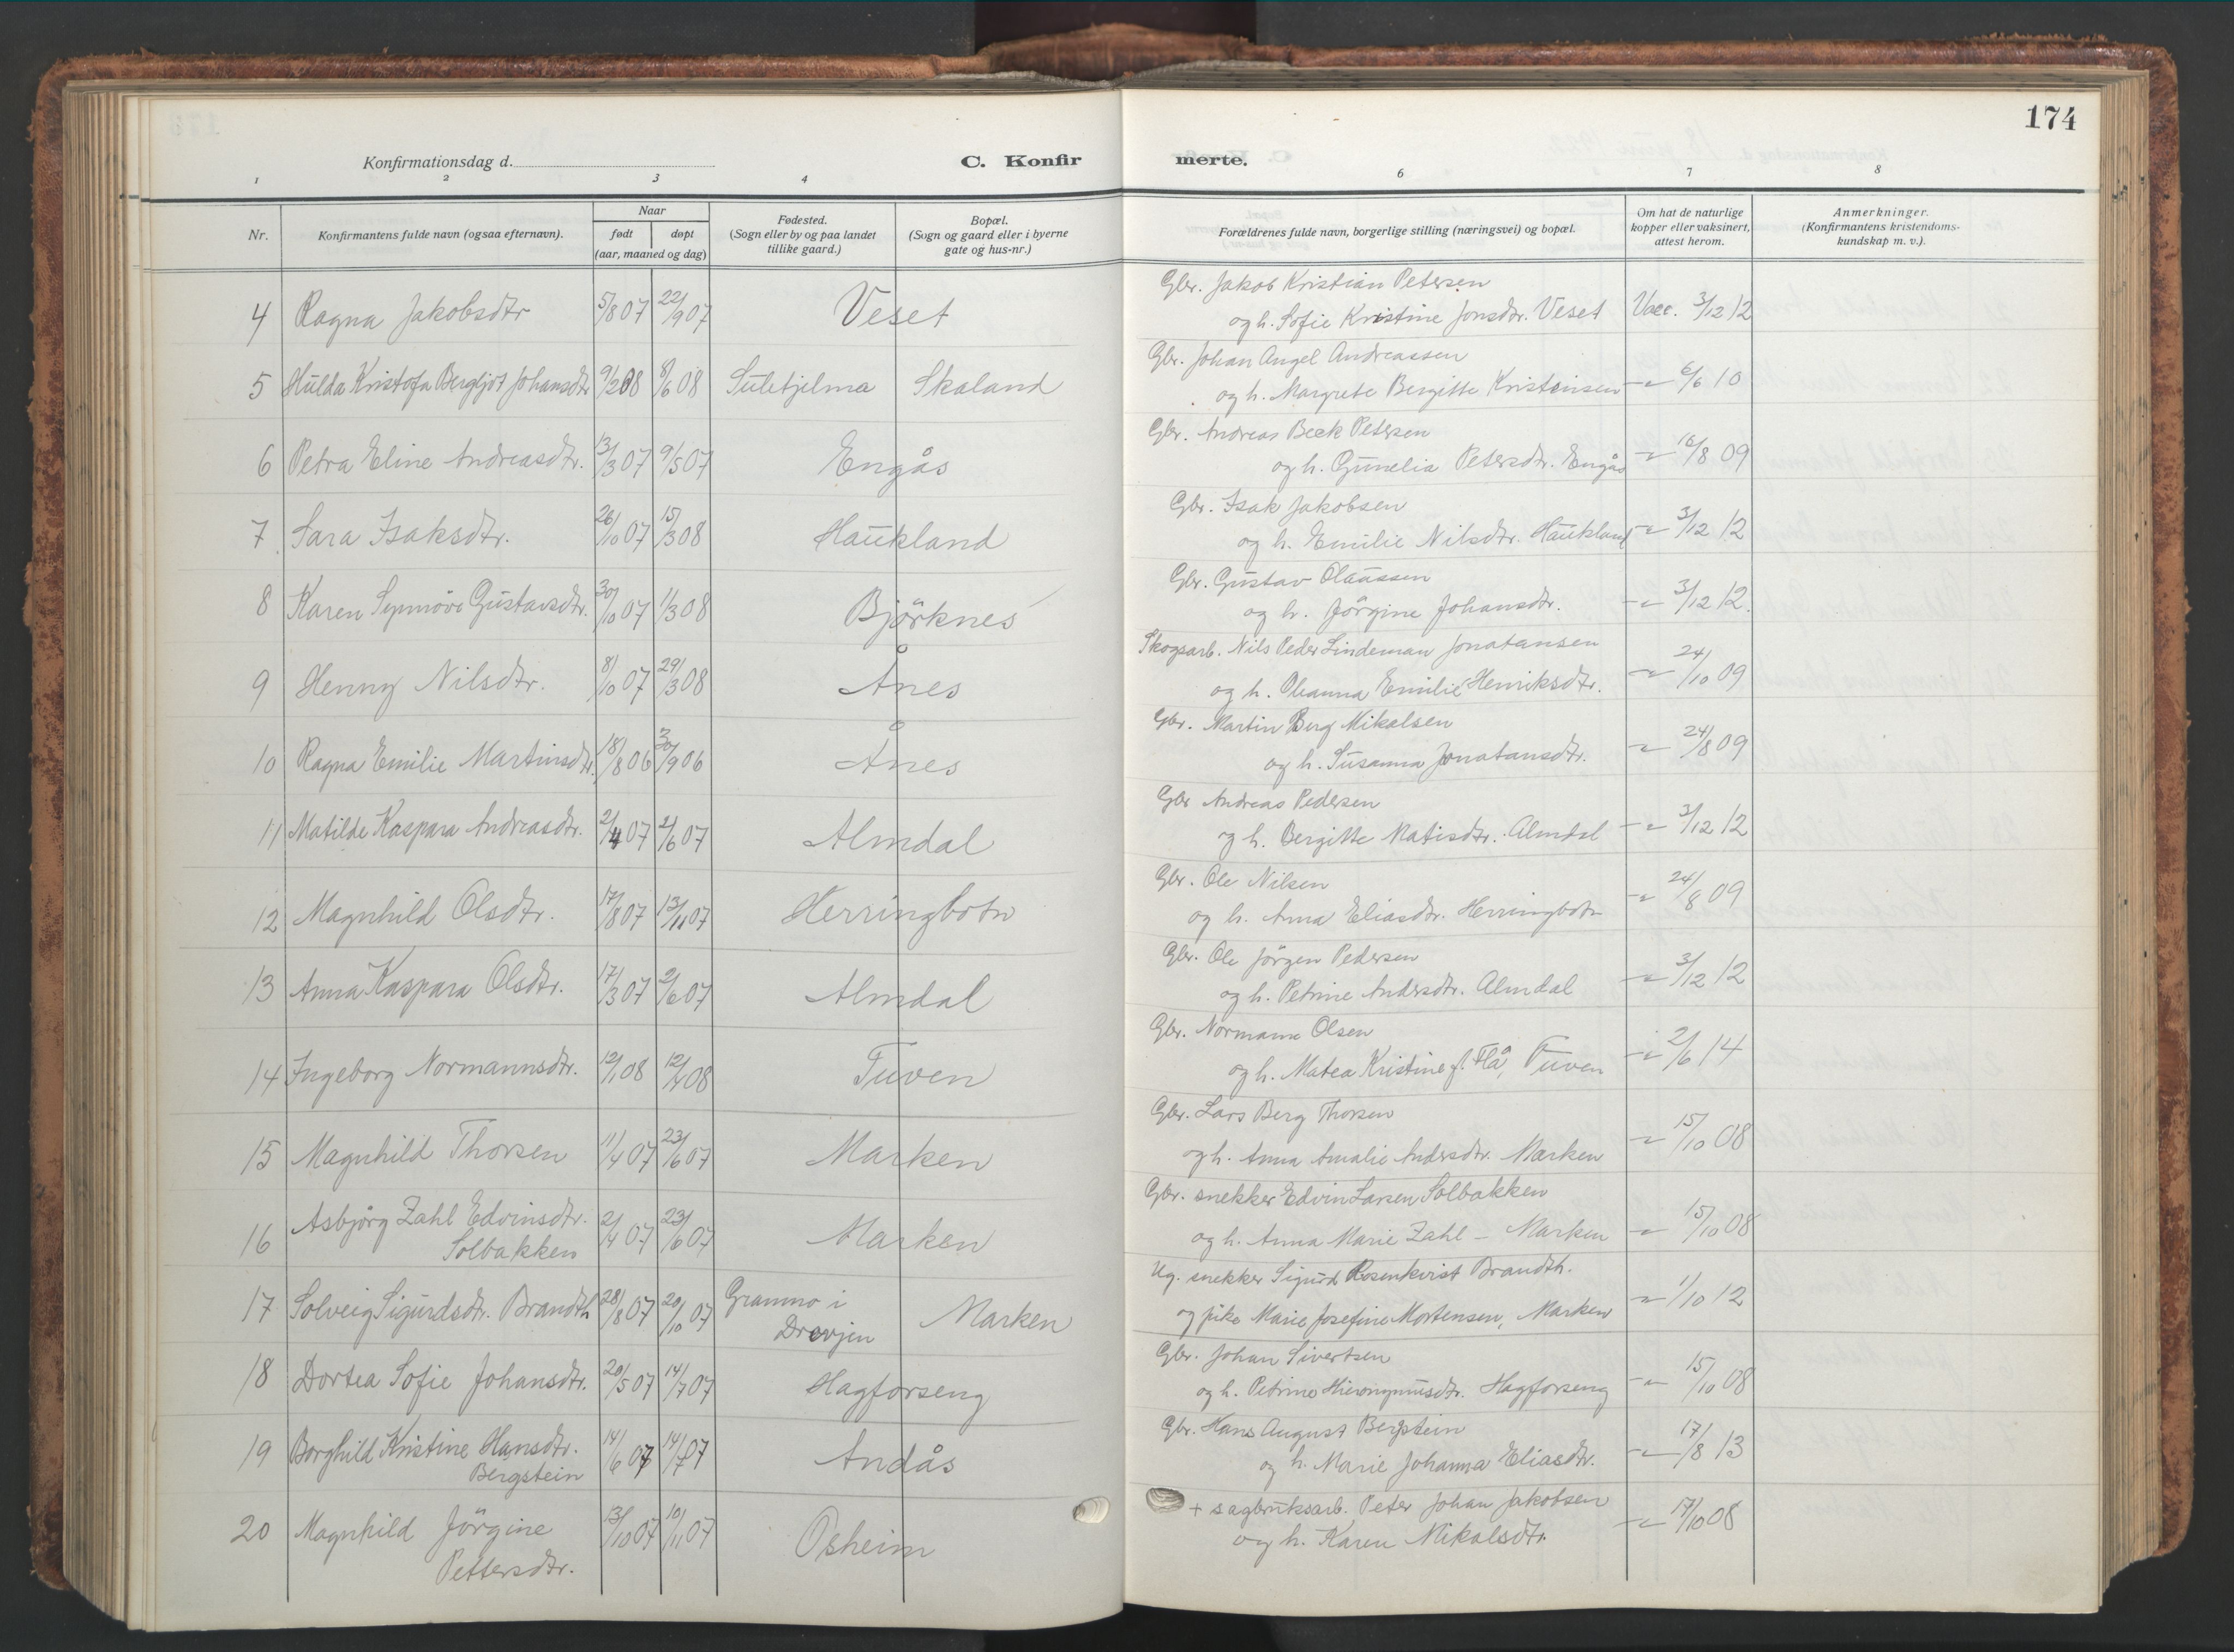 174
Konfirmationsdag d.
C. Konfir
merte.
1 2 3 4 6 7 8
Nr.
Konfirmantens fulde navn (ogsaa efternavn).
Naar
født døpt
(aar, maaned og dag)
Fødested.
(Sogn eller by og paa landet
tillike gaard.)
Bopæl.
(Sogn og gaard eller i byerne
gate og hus-nr.)
Forældrenes fulde navn, borgerlige stilling (næringsvei) og bopæl.
Om hat de naturlige
kopper eller vaksinert,
attest herom.
Anmerkninger.
(Konfirmantens kristendoms-
kundskap m. v.).
4 Ragna Jakobsdtr 5/8 07 22/9 07 Veset
Gbr. Jakob Kristian Petersen
og h. Sofie Kristine Jonsdtr. Veset Vacc. 3/12 12
5 Hulda Kristofa Bergljot Johansdtr 9/2 08 8/6 08 Sulitjelma Skaland
Gbr. Johan Angel Andreassen
og h. Margrete Bergitte Kristensen -"- 6/6 10
6 Petra Eline Andreasdtr. 13/3 07 9/5 07 Engås
Gbr. Andreas Beck Petersen
og h. Gunelia Petersdtr. Engås -"- 16/8 09
7 Sara Isaksdtr. 26/10 07 15/3 08 Haukland
Gbr. Isak Jakobsen
og h. Emilie Nilsdtr. Haukland -"- 3/12 12
8 Karen Synnöve Gustavsdtr. 30/10 07 1/3 08 Björknes
Gbr. Gustav Olaussen
og h. Jörgine Johansdtr. -"- 3/12 12.
9 Henny Nilsdtr. 8/10 07 29/3 08 Ånes
Skogsarb. Nils Peder Lindeman Jonatansen
og h. Oleanna Emilie Henriksdtr. -"- 24/10 09
10 Ragna Emilie Martinsdtr. 18/8 06 30/9 06 Ånes
Gbr. Martin Berg Mikalsen
og h. Susanna Jonatansdtr. -"- 24/8 09
11 Matilde Kaspara Andreasdtr. 2/4 07 2/6 07 Almdal
Gbr Andreas Pedersen
og h. Bergitte Matisdtr. Almdal -"- 3/12 12
12 Magnhild Olsdtr. 17/8 07 13/11 07 Herringbotn
Gbr. Ole Nilsen
og h. Anna Eliasdtr. Herringbotn -"- 24/8 09
13 Anna Kaspara Olsdtr. 17/3 07 2/6 07 Almdal
Gbr. Ole Jörgen Pedersen
og h. Petrine Andersdtr. Almdal -"- 3/12 12
14 Ingeborg Normannsdtr. 12/1 08 12/4 08 Tuven
Gbr. Normann Olsen
og h. Matea Kristine f. Flå, Tuven -"- 2/6 14
15 Magnhild Thorsen 11/4 07 23/6 07 Marken
Gbr. Lars Berg Thorsen
og h. Anna Amalie Andersdtr. Marken -"- 15/10 08
16 Asbjörg Zahl Edvinsdtr.
Solbakken 2/4 07 23/6 07 Marken
Gbr. snekker Edvin Larsen Solbakken
og h. Anna Marie Zahl - Marken -"- 15/10 08
17 Solveig Sigurdsdtr. Brandth 28/8 07 20/10 07 Granmo i
Drevjen Marken
Ug. snekker Sigurd Rosenkvist Brandth.
og pike Marie Josefine Mortensen, Marken -"- 1/10 12
18 Dortea Sofie Johansdtr. 20/5 07 14/7 07 Hagforseng
Gbr. Johan Sivertsen
og h. Petrine Hieronymusdtr. Hagforseng -"- 15/10 08
19 Borghild Kristine Hansdtr.
Bergstein 14/6 07 14/7 07 Andås
Gbr. Hans August Bergstein
og h. Marie Johanna Eliasdtr. -"- 17/8 13
20 Magnhild Jörgine
Pettersdtr. 13/10 07 10/11 07 Osheim
+ sagbruksarb. Peter Johan Jakobsen
og h. Karen Mikalsdtr. -"- 17/10 08